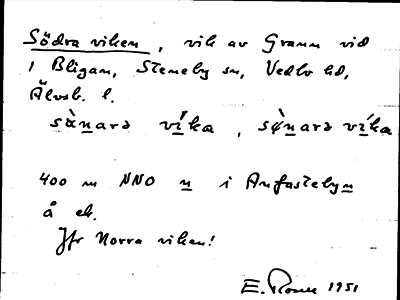 Södra viken, vik av Grann vid
1 Bligan, Steneby sn, Vedbo hd,
Älvsb. l.
sǜnarə víka, sø̀narə víka
400 m NNO n i Anfastebyn
å ek.
Jfr Norra viken!
E. Rosell 1951